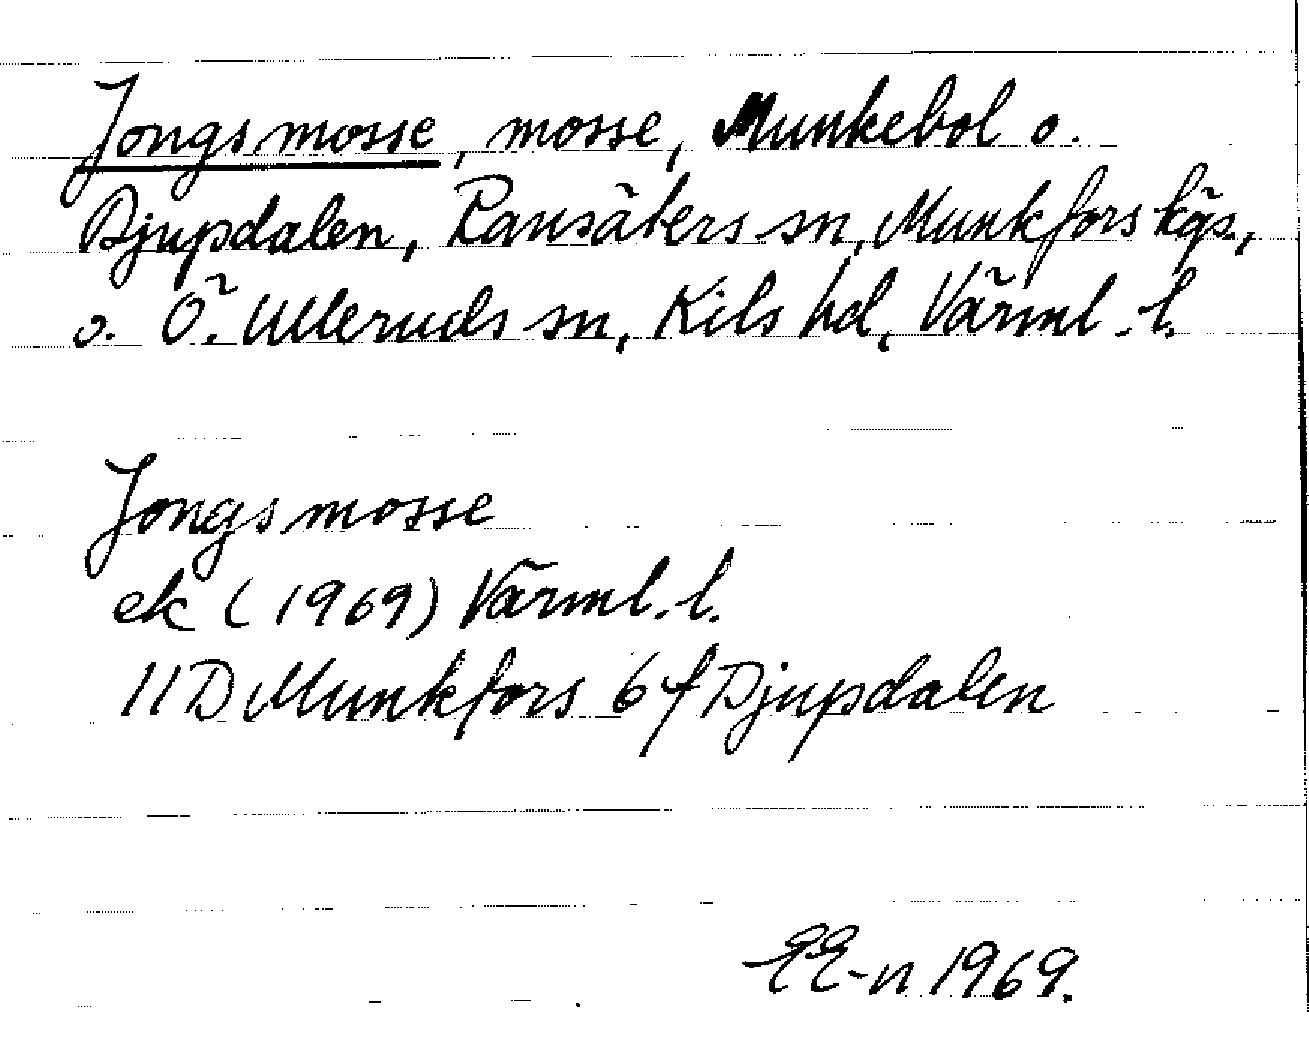 Jongsmosse, mosse, Munkebol o.
Djupdalen, Ransäters sn, Munkfors kgs.,
o. Ö. Ulleruds sn, Kils hd, Värml. l.
Jongsmosse
ek (1969) Värml. l.
11D Munkfors 6f Djupdalen
EE-n 1969.